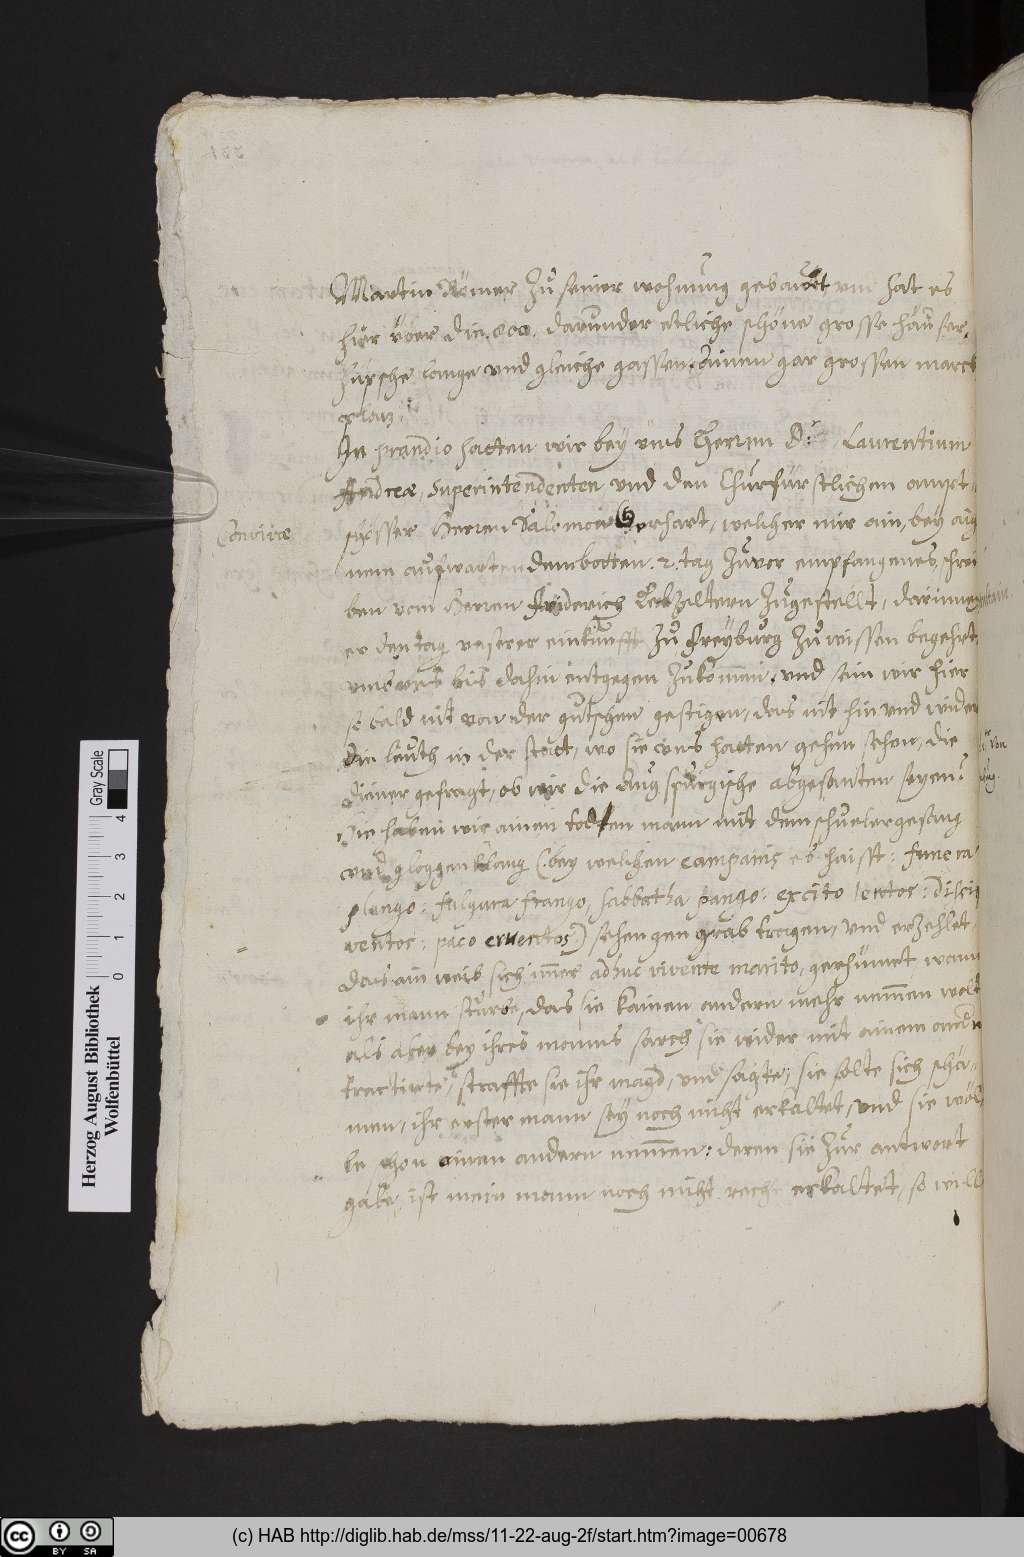 Martin Römer zu seiner wohnung gebauet und hat es
hier über die 800. darunder etliche schöne grosse heüser,
hüpsche lange und gleiche gassen, ainen gar grossen marckt
platz.
In prandio hatten wir bey uns Herren D: Laurentium
Andreæ, Superintendenten, und den Churfürstlichen ampt
schösser Herren Salomon Gerhart, welcher mir ain, bey aig
nem aufwartenden botten .2. tag zuvor empfangenes, schrei
ben vom Herren Friderich Lebzeltern zugestellt, darinnen
er den tag unserer einkunfft zu Freyburg zu wissen begehrt,
uns bis dahin entgegen zukommen, und sein wir hier
so bald nit von der gutschen gestigen, das nit hin und wider
die leüth in der statt, wo sie uns hatten gehen sehen, die
diener gefragt, ob wir die Augspurgische abgesanten seyen?
Hie haben wir ainen todten mann mit dem schuelergesang
und gloggenklang (bey welchen campanis es haisst: funera
plango: fulgura frango, sabbatha pango: excito lentos: discu
ventos: paco cruentos:) sehen gen grab tragen, und erzehlet,
das ain weib sich immer adhuc vivente marito, gerhümet wann
ihr mann sturbe, das sie kainen andern mehr nemmen wolt
als aber bey ihres manns sarch sie wider mit ainem andern
tractirte, straffte sie ihr magd, und sagte, sie solte sich schä-
men, ihr erster mann sey noch nicht erkaltet, und sie wöl
le schon ainen andern nemmen: deren sie zur antwort
gabe, ist mein mann noch nicht recht erkaltet, so will
Convivæ
Herzog August Bibliothek
Wolfenbüttel
0 1 2 3 4
Gray Scale
(c) HAB http://diglib.hab.de/mss/11-22-aug-2f/start.htm?image=00678
CC BY SA